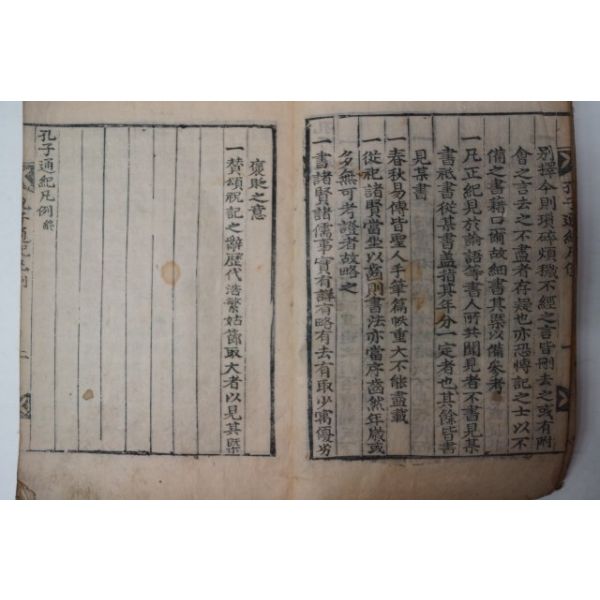 別擇今則瑣碎煩穢不經之言皆刪去之或有附
會之言去之不盡者存疑也亦恐傳記之士以不
備之書藉口而故細書其槩以備參考
一凡正紀見於論語等書人所共聞見者不書見某
書祗書從某書盖指其年分一定者也其餘皆書
見某書
一春秋易傳皆聖人手筆篇帙重大不能盡載
一從祀諸賢當坐以齒則書法亦當序齒然年歲或
多無可考證者故略之
一書諸賢諸儒事實有詳有略有去有取少寓優劣
褒貶之意
一贊頌祝記之辭歷代浩繁姑節取大者以見其槩
孔子通紀凡例終